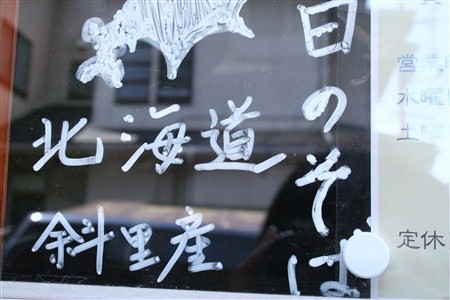 日のそば
北海道
斜里産
営業
水曜
土曜
定休